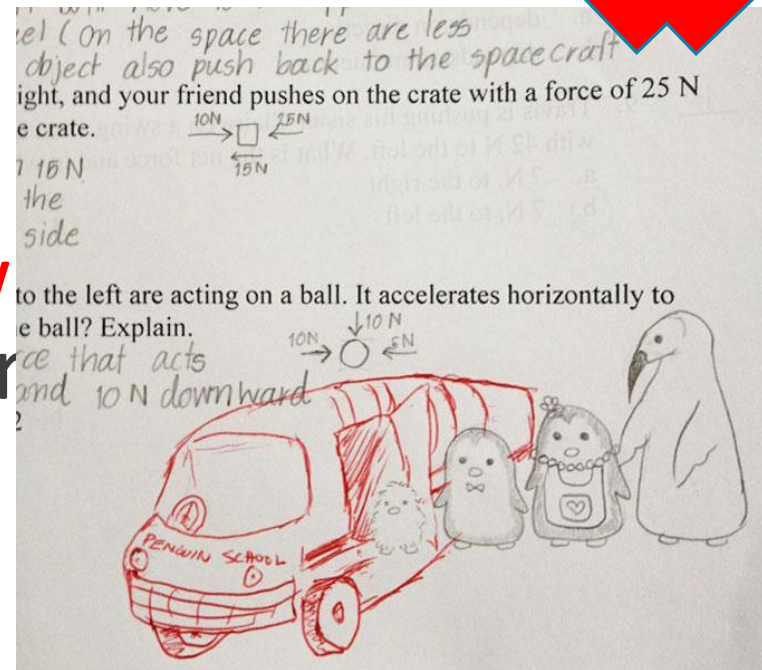 el (on the space there are less
object also push back to the spacecraft
ight, and your friend pushes on the crate with a force of 25 N
e crate.
10N 25N
15N
15N
the
side
to the left are acting on a ball. It accelerates horizontally to
e ball? Explain.
10N
10N 5N
ce that acts
and 10 N downward
PENGUIN SCHOOL